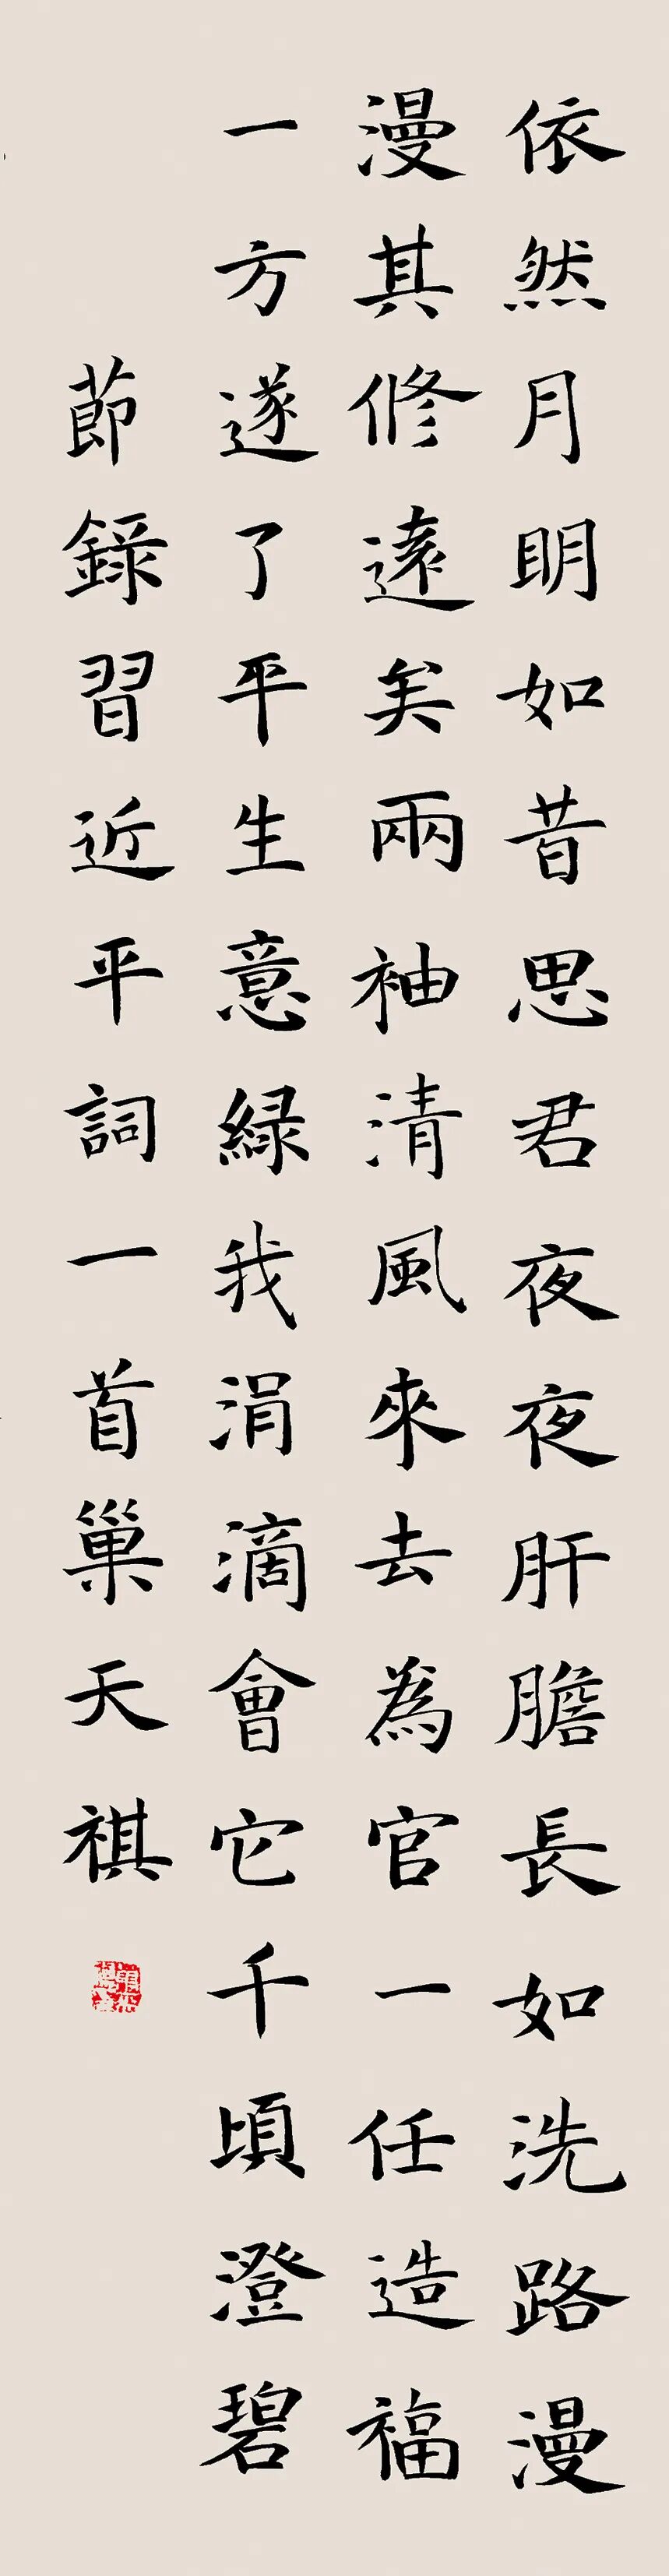 依然月明如昔思君夜夜肝膽長如洗路漫
漫其修遠矣兩袖清風來去為官一任造福
一方遂了平生意緑我涓滴會它千頃澄碧
節錄習近平詞一首巢天祺